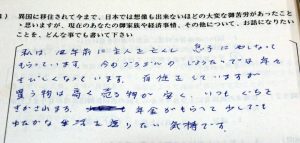 異国に移住されて今まで、日本では想像も出来ないほどの大変な御苦労があったこと
思いますが、現在のあなたの御家族や経済事情、その他について、お話になりたい
ことを、どんな事でも書いて下さい。
私は 12年前に主人を亡くし 息子に
もらっています。 今のブラジルの では年々
きびしくなっています。 百姓をしていますが
買う物は高く 売る物が安く、いつも ぐちを
きかされます。 年金がもらえて少しでも
ゆたかな生活を送りたい気持です。